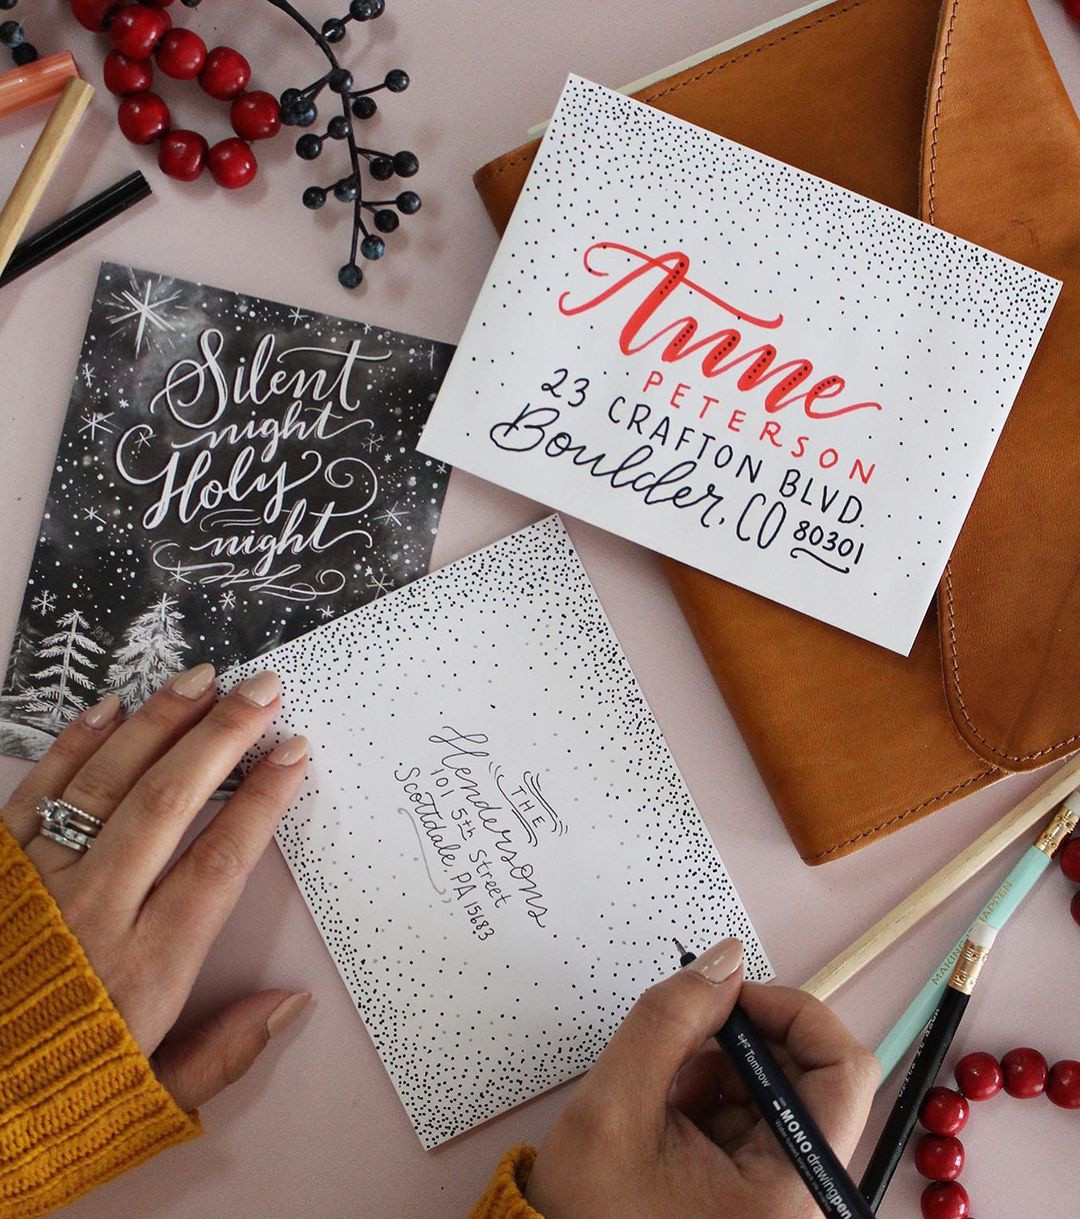 Silent
night
Holy
night
Anne
PETERSON
23 CRAFTON BLVD.
Boulder, CO 80301
THE
Hendersons
101 5th Street
Scottdale, PA 15683
Tombow
MONO drawing pen
MAKING IT HAPPEN